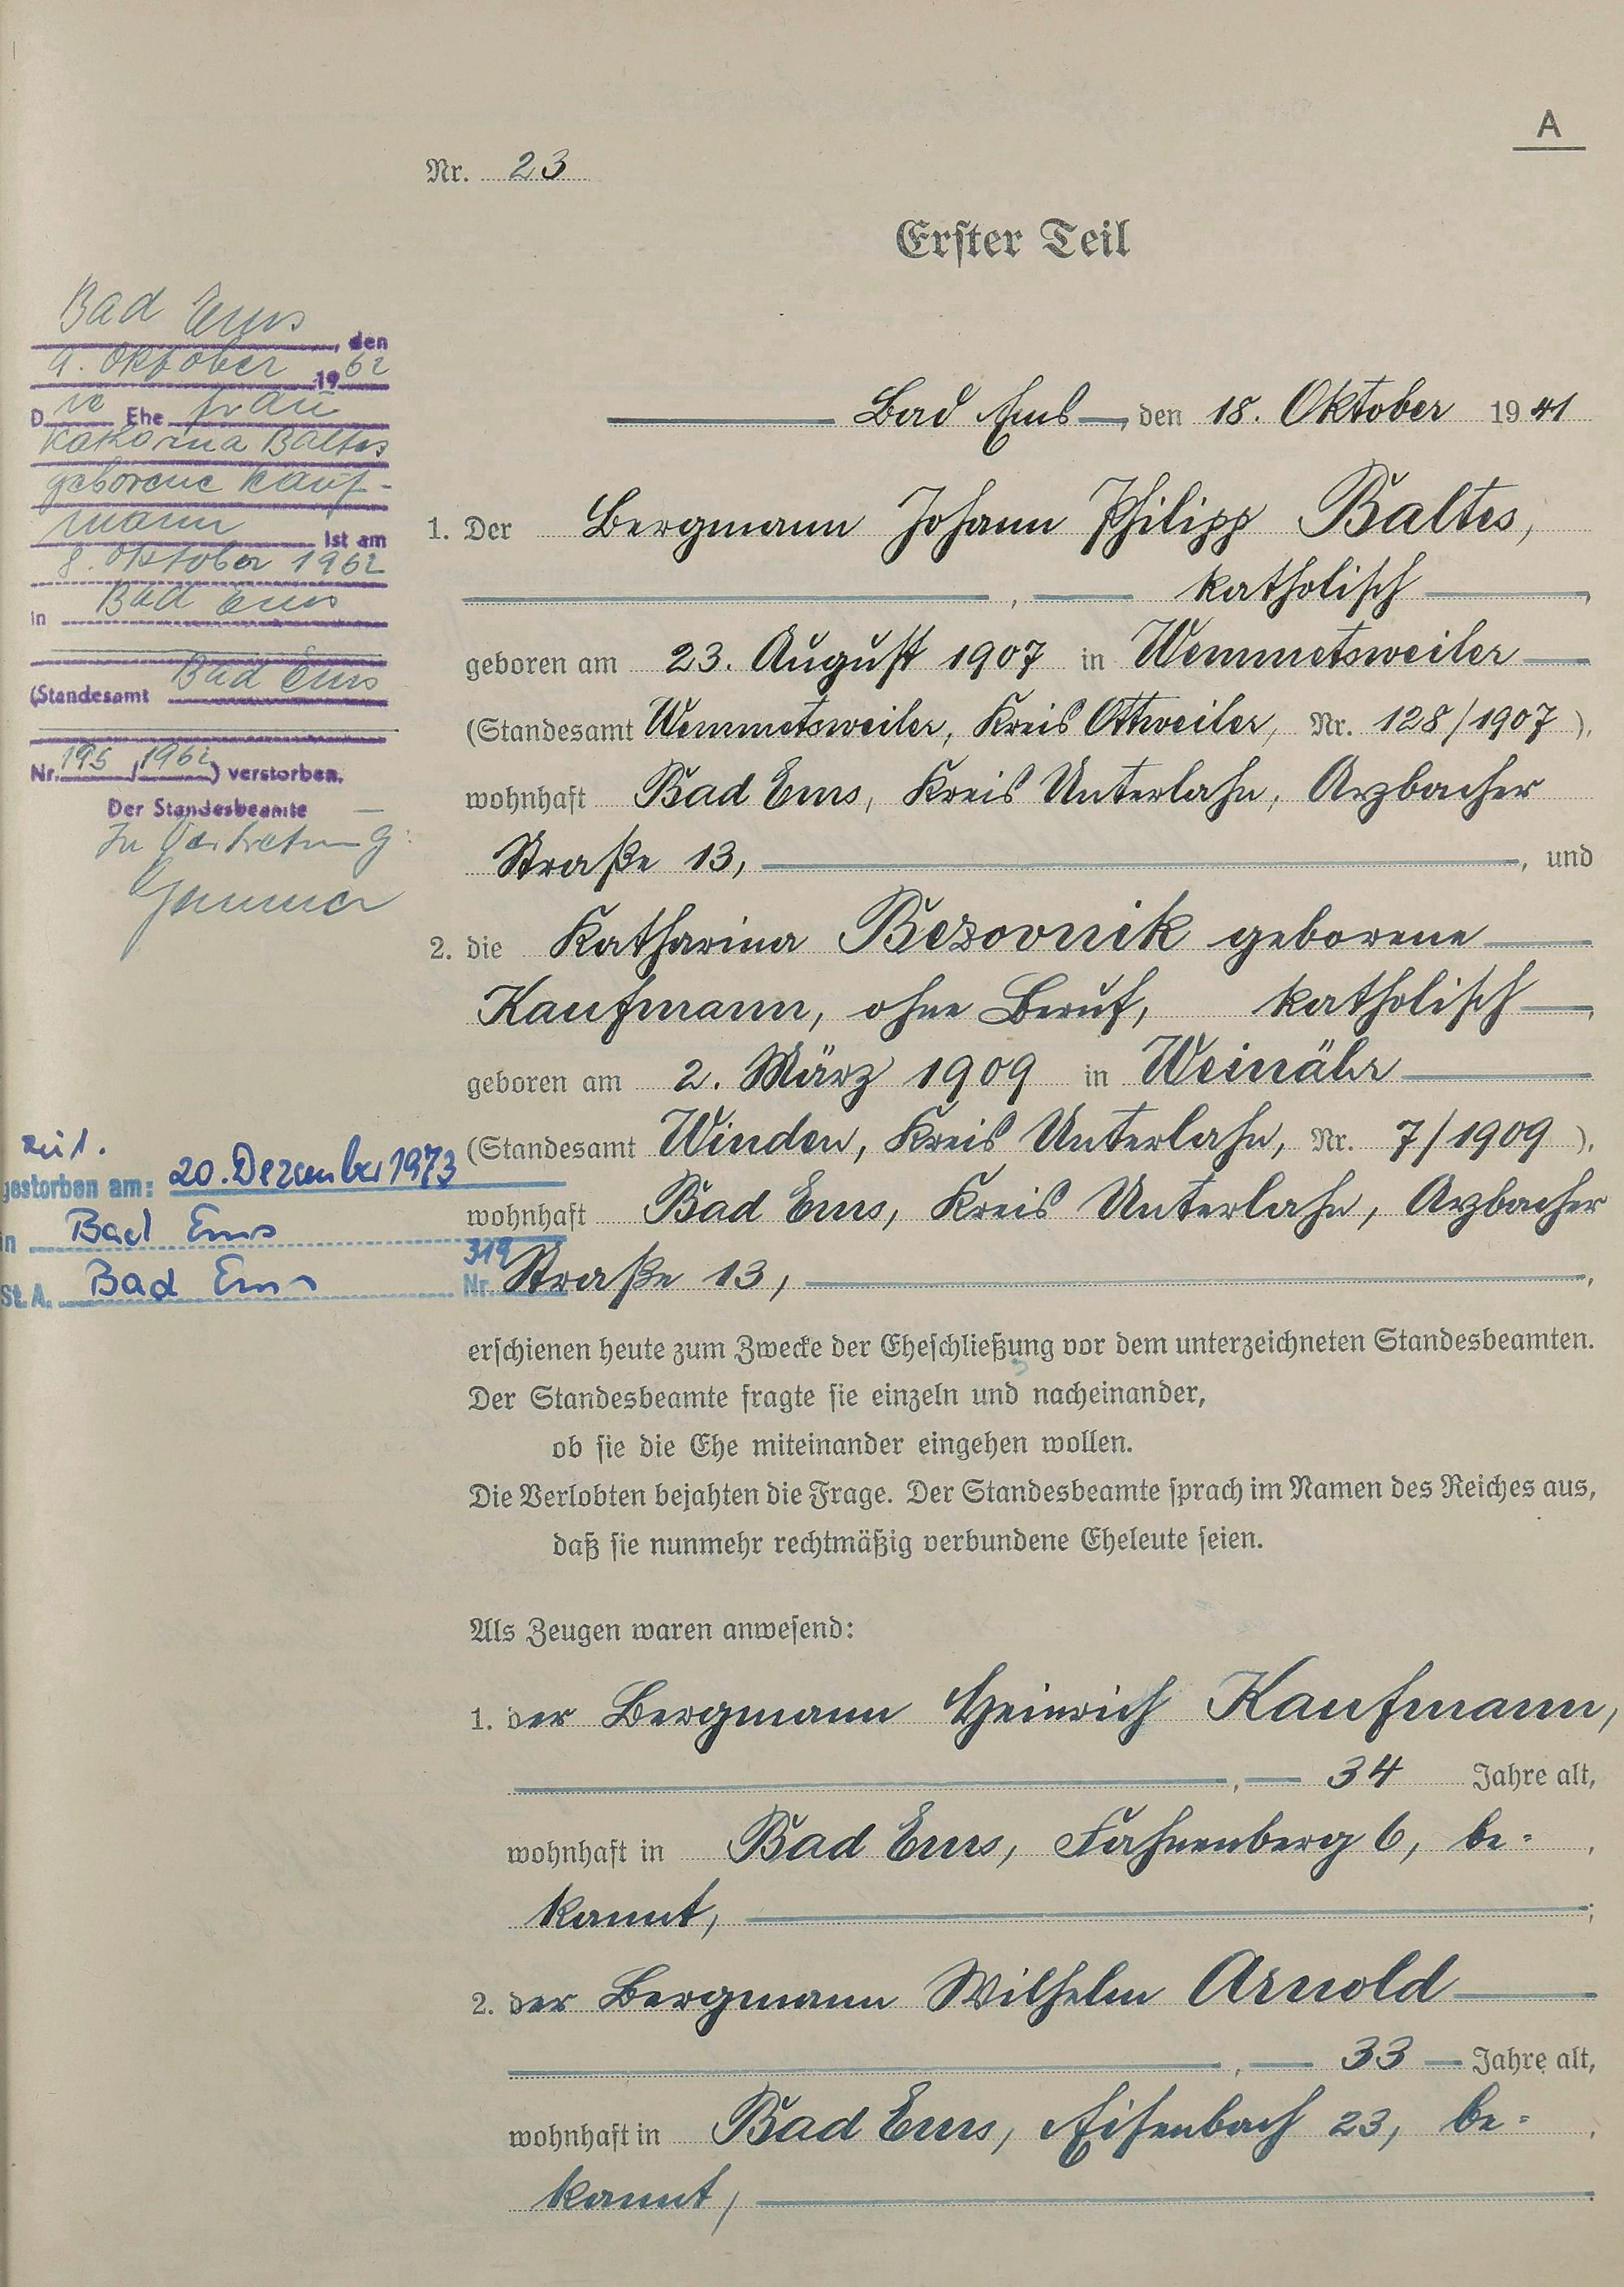 A
Nr. 23
Erster Teil
Bad Ems, den 18. Oktober 1941
1. Der Bergmann Johann Philipp Baltes,
, katholisch,
geboren am 23. August 1907 in Wemmetsweiler
(Standesamt Wemmetsweiler, Kreis Ottweiler, Nr. 128/1907),
wohnhaft Bad Ems, Kreis Unterlahn, Arzbacher
Straße 13, , und
2. die Katharina Bezovnik geborene
Kaufmann, ohne Beruf, katholisch,
geboren am 2. März 1909 in Weinähr
(Standesamt Winden, Kreis Unterlahn, Nr. 7/1909),
wohnhaft Bad Ems, Kreis Unterlahn, Arzbacher
Straße 13, ,
erschienen heute zum Zwecke der Eheschließung vor dem unterzeichneten Standesbeamten.
Der Standesbeamte fragte sie einzeln und nacheinander,
ob sie die Ehe miteinander eingehen wollen.
Die Verlobten bejahten die Frage. Der Standesbeamte sprach im Namen des Reiches aus,
daß sie nunmehr rechtmäßig verbundene Eheleute seien.
Als Zeugen waren anwesend:
1. der Bergmann Heinrich Kaufmann,
, 34 Jahre alt,
wohnhaft in Bad Ems, Fahnenberg 6, be-
kannt, ;
2. der Bergmann Wilhelm Arnold
, 33 Jahre alt,
wohnhaft in Bad Ems, Eisenbach 23, be-
kannt,
Bad Ems, den
9. Oktober 1962
Die Ehefrau
Katharina Baltes
geborene Kauf-
mann ist am
8. Oktober 1962
in Bad Ems
(Standesamt Bad Ems
Nr. 195/1962) verstorben.
Der Standesbeamte
In Vertretung:
zu 1.
gestorben am: 20. Dezember 1973
in Bad Ems
St. A. Bad Ems Nr. 319